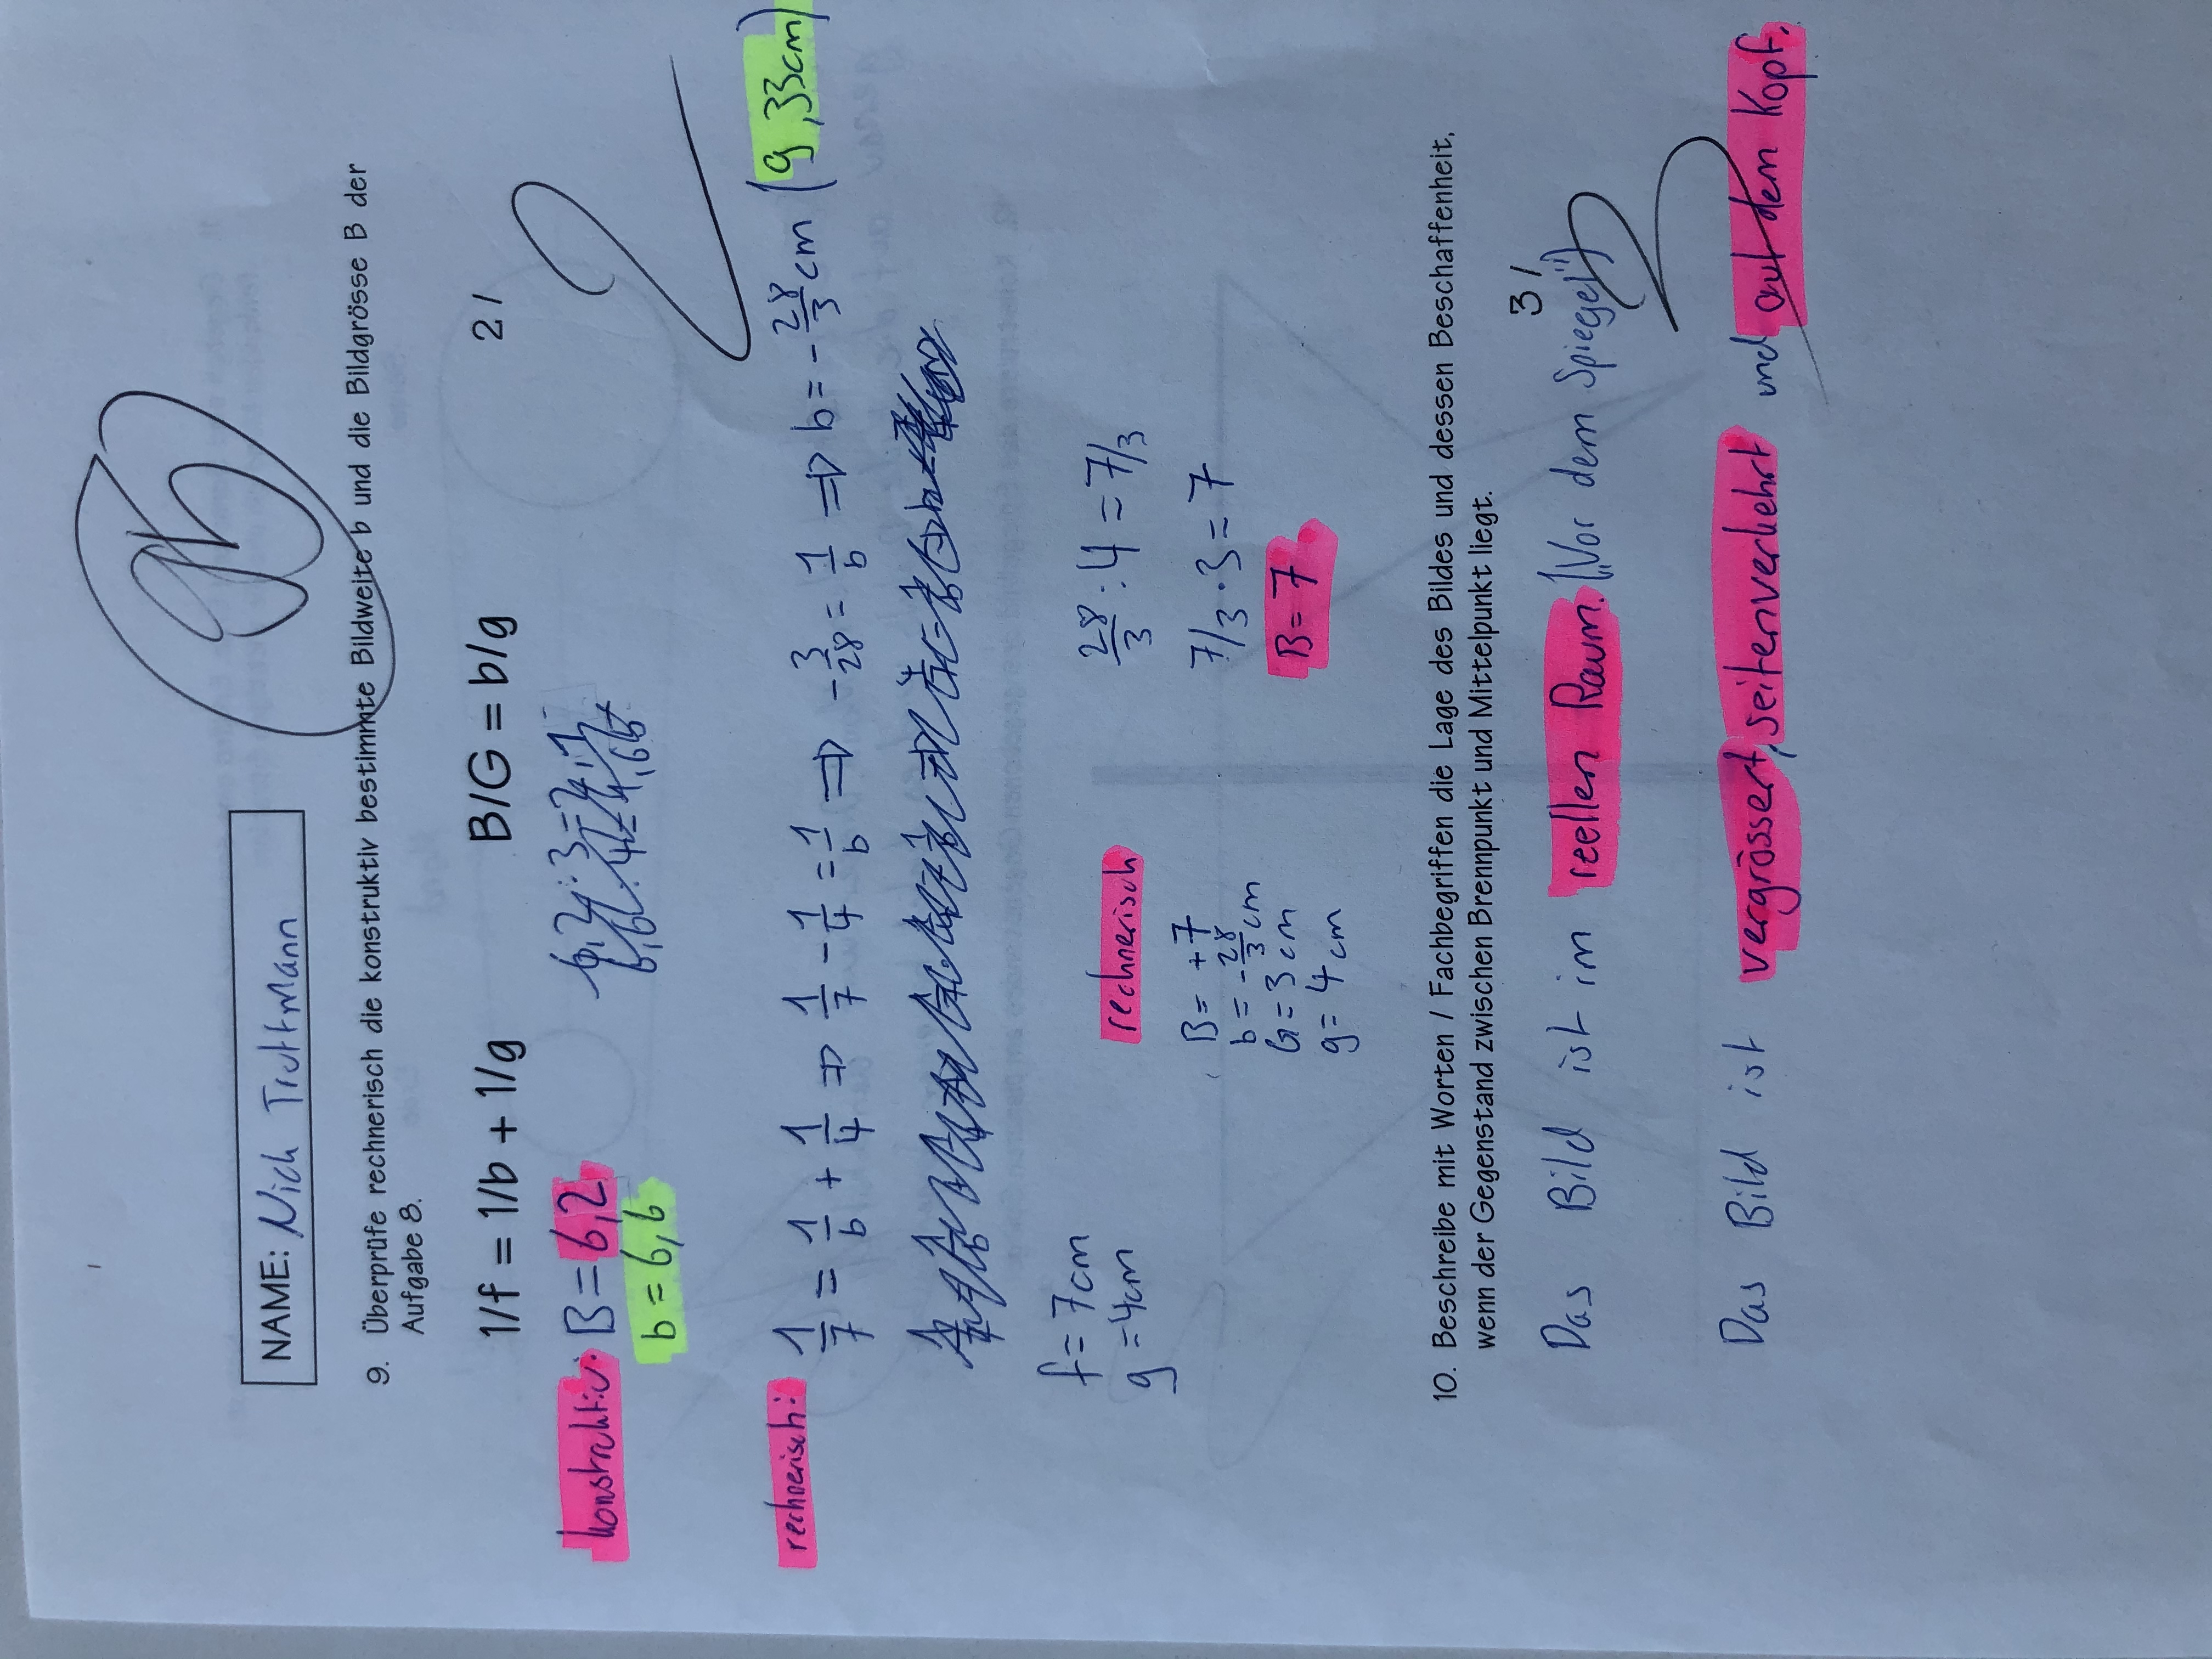 NAME: Nich Trutmann
9. Überprüfe rechnerisch die konstruktiv bestimmte Bildweite b und die Bildgrösse B der
Aufgabe 8.
1/f = 1/b + 1/g B/G = b/g 2 /
konstruktiv: B = 6,2
b = 6,6
2
rechnerisch: 1/7 = 1/b + 1/4 ⇒ 1/7 - 1/4 = 1/b ⇒ -3/28 = 1/b ⇒ b = -28/3 cm (9,33cm)
f = 7cm
g = 4cm
rechnerisch
B = +7
b = -28/3 cm
G = 3cm
g = 4cm
28/3 : 4 = 7/3
7/3 · 3 = 7
B = 7
10. Beschreibe mit Worten / Fachbegriffen die Lage des Bildes und dessen Beschaffenheit,
wenn der Gegenstand zwischen Brennpunkt und Mittelpunkt liegt.
3 /
Das Bild ist im reellen Raum. („Vor dem Spiegel")
Das Bild ist vergrössert, seitenverkehrt und auf dem Kopf.